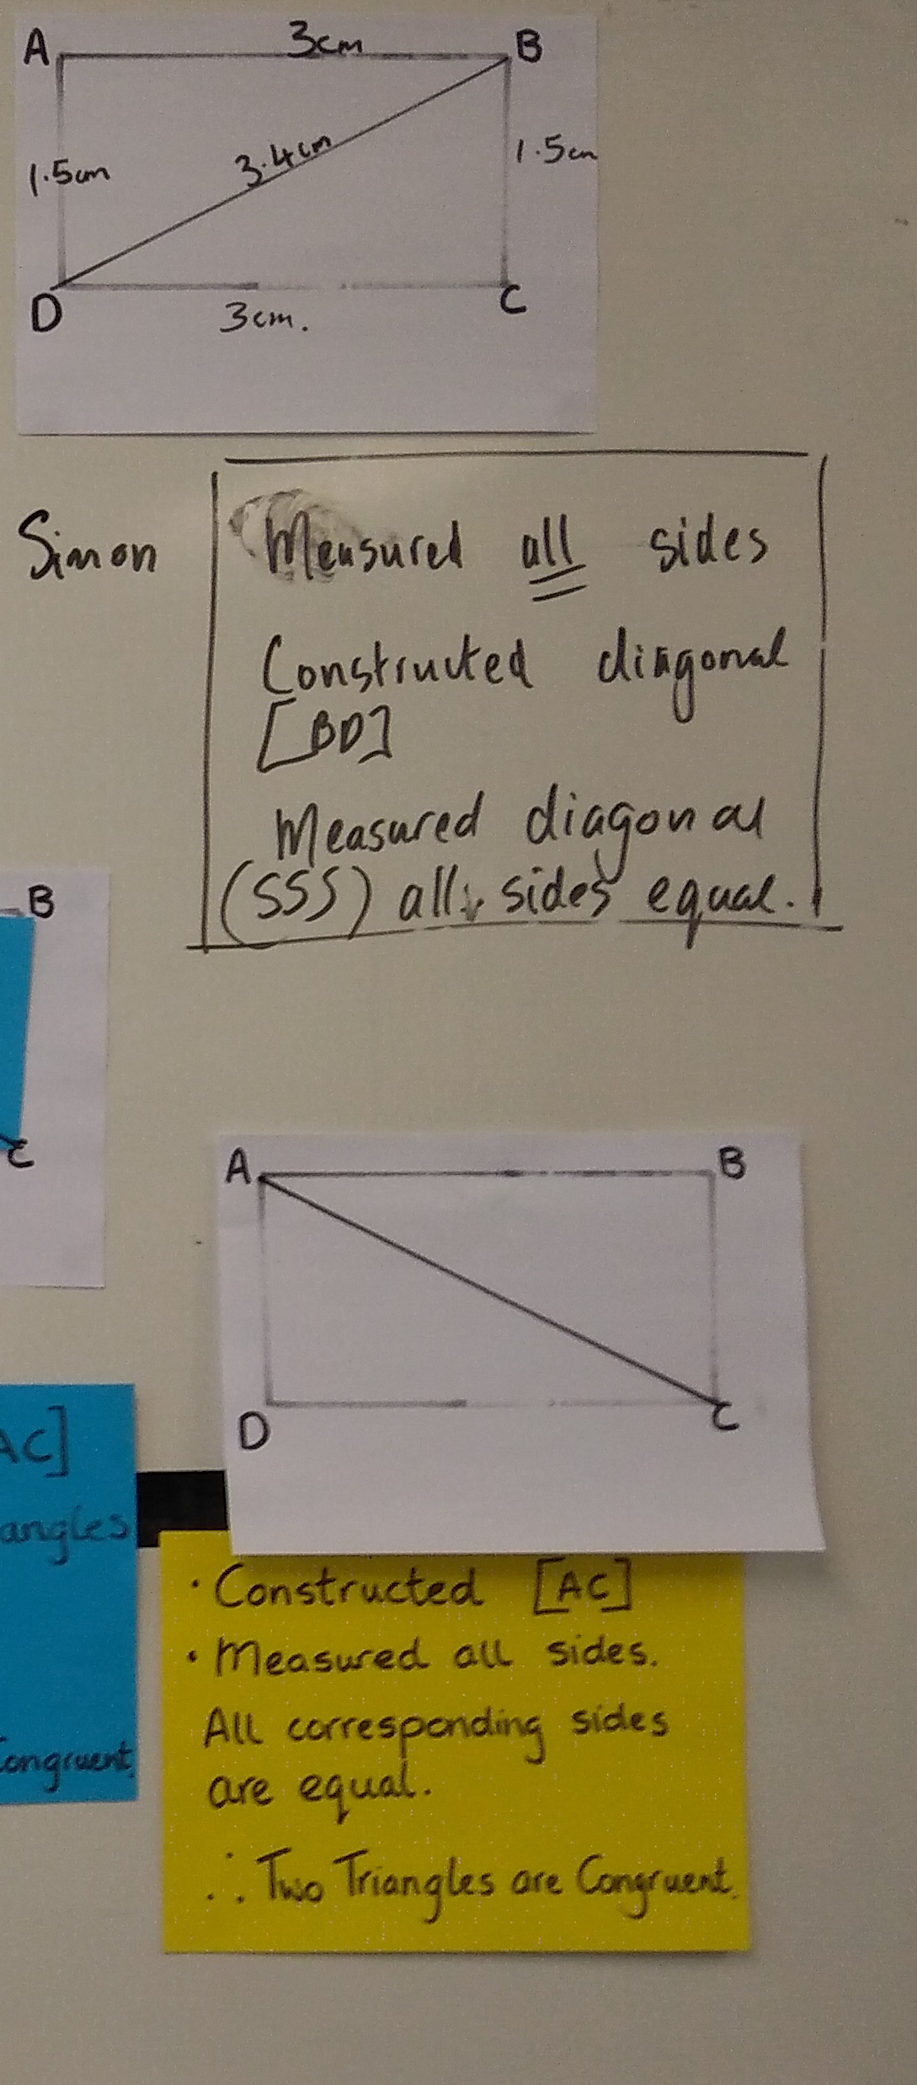 A 3cm B
1.5cm 3.4cm 1.5cm
D C
3cm.
Simon
Measured all sides
Constructed diagonal
[BD]
Measured diagonal
(SSS) all sides equal.
B
C
AC]
angles
Congruent.
A B
D C
· Constructed [AC]
· Measured all sides.
All corresponding sides
are equal.
∴ Two Triangles are Congruent.